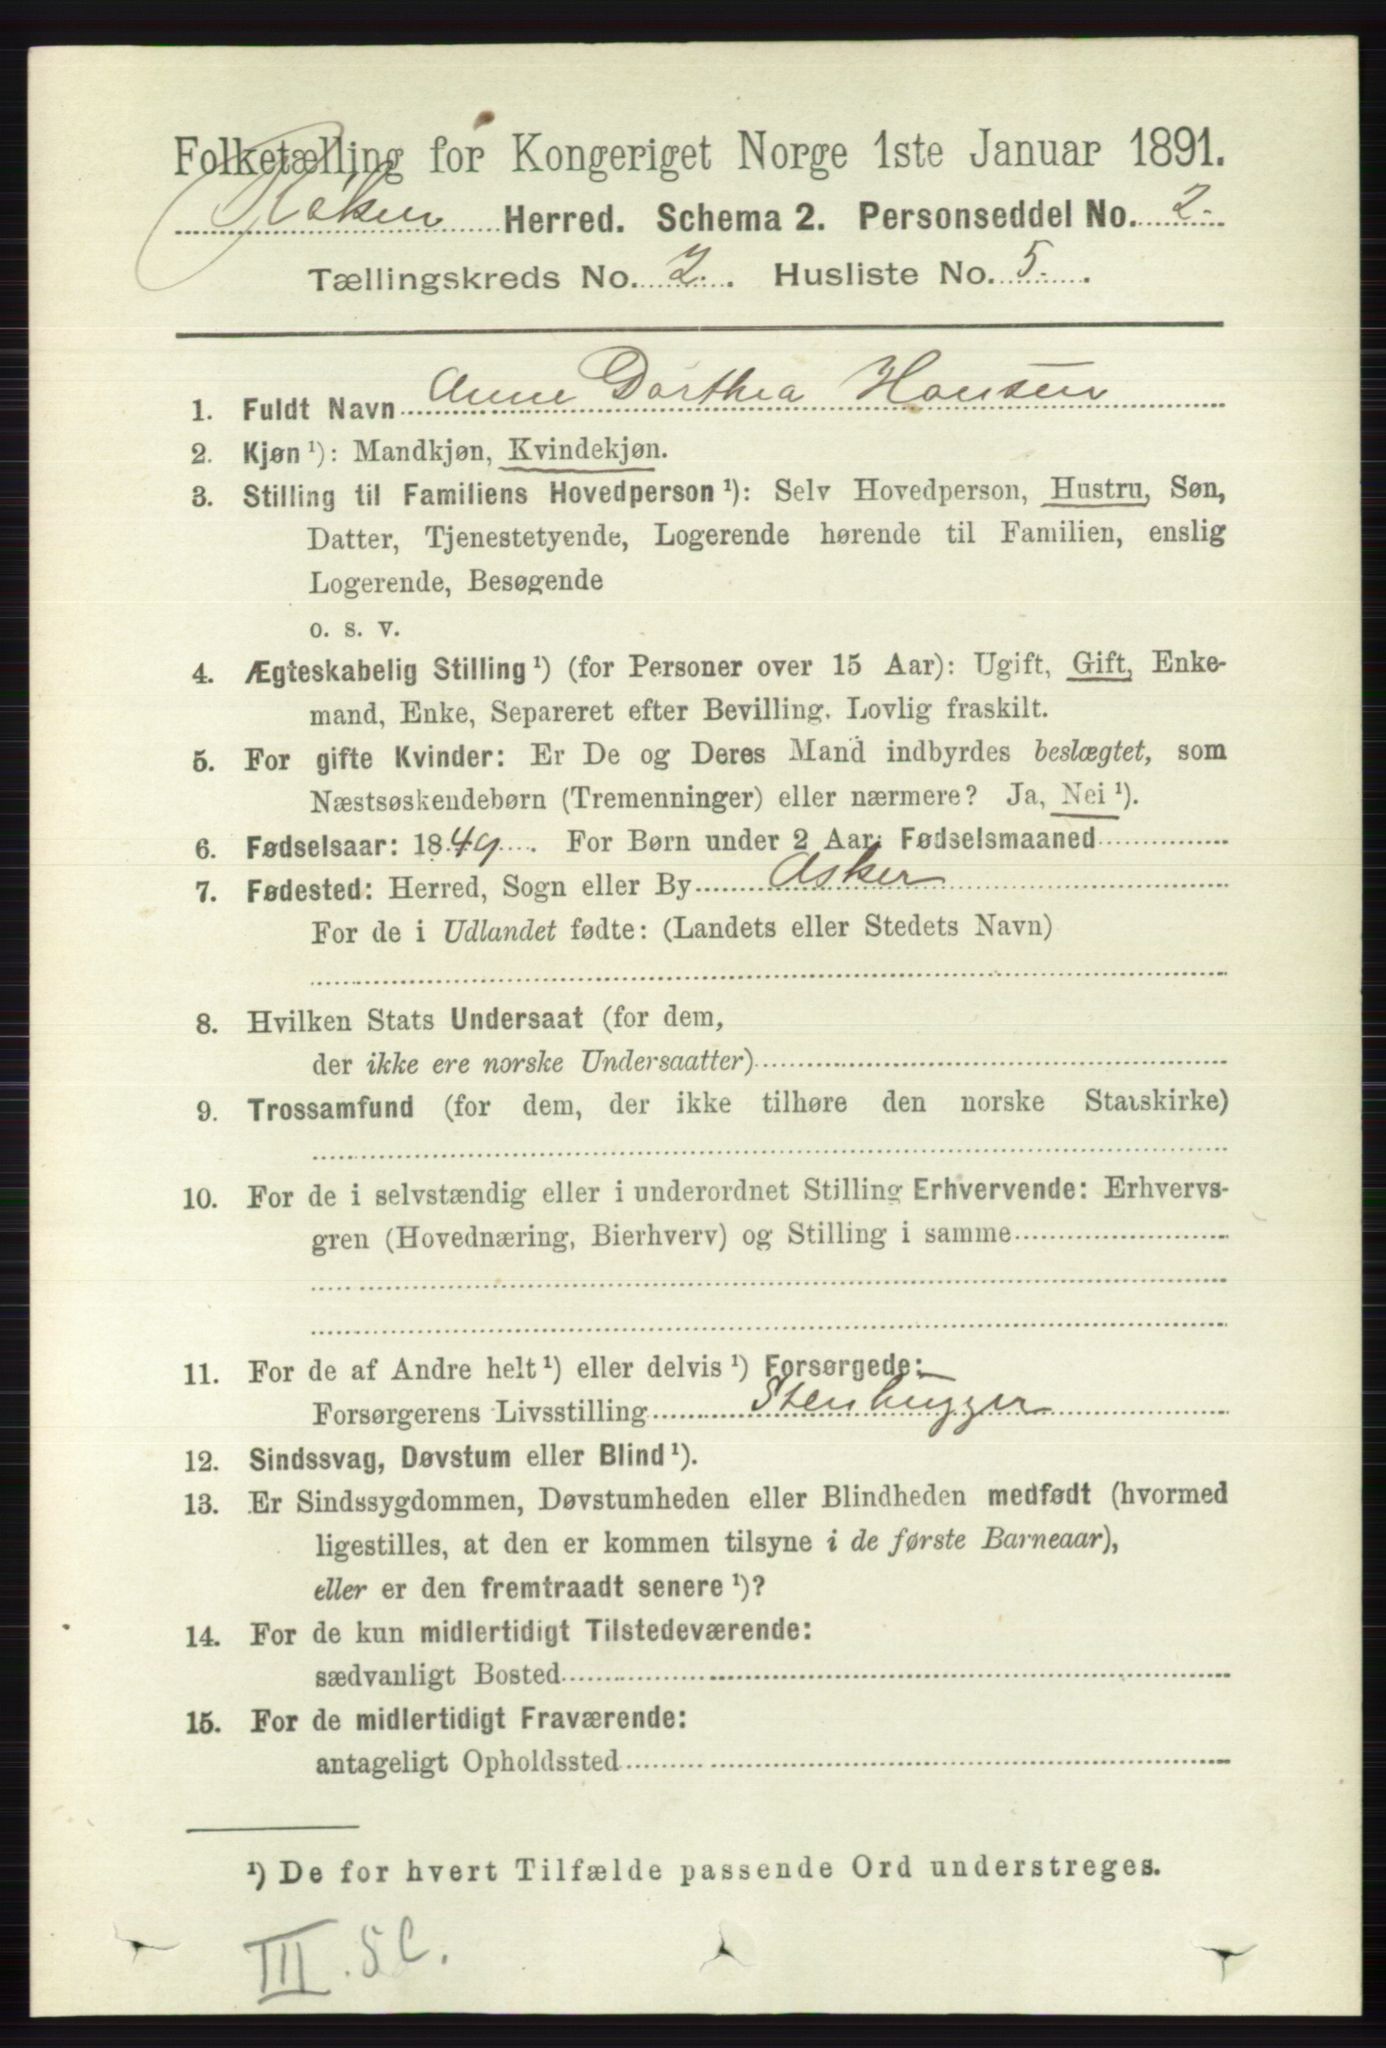 Folketælling for Kongeriget Norge 1ste Januar 1891.
Røken Herred. Schema 2. Personseddel No. 2.
Tællingskreds No. 2. Husliste No. 5.
1. Fuldt Navn Anne Dorthea Hansen
2. Kjøn ¹): Mandkjøn, Kvindekjøn.
3. Stilling til Familiens Hovedperson ¹): Selv Hovedperson, Hustru, Søn,
Datter, Tjenestetyende, Logerende hørende til Familien, enslig
Logerende, Besøgende
o. s. v.
4. Ægteskabelig Stilling ¹) (for Personer over 15 Aar): Ugift, Gift, Enke-
mand, Enke, Separeret efter Bevilling. Lovlig fraskilt.
5. For gifte Kvinder: Er De og Deres Mand indbyrdes beslægtet, som
Næstsøskendebørn (Tremenninger) eller nærmere? Ja, Nei ¹).
6. Fødselsaar: 1849. For Børn under 2 Aar: Fødselsmaaned
7. Fødested: Herred, Sogn eller By Asker
For de i Udlandet fødte: (Landets eller Stedets Navn)
8. Hvilken Stats Undersaat (for dem,
der ikke ere norske Undersaatter)
9. Trossamfund (for dem, der ikke tilhøre den norske Statskirke)
10. For de i selvstændig eller i underordnet Stilling Erhvervende: Erhvervs-
gren (Hovednæring, Bierhverv) og Stilling i samme
11. For de af Andre helt ¹) eller delvis ¹) Forsørgede:
Forsørgerens Livsstilling Stenhugger
12. Sindssvag, Døvstum eller Blind ¹).
13. Er Sindssygdommen, Døvstumheden eller Blindheden medfødt (hvormed
ligestilles, at den er kommen tilsyne i de første Barneaar),
eller er den fremtraadt senere ¹)?
14. For de kun midlertidigt Tilstedeværende:
sædvanligt Bosted
15. For de midlertidigt Fraværende:
antageligt Opholdssted
¹) De for hvert Tilfælde passende Ord understreges.
III. 5C.